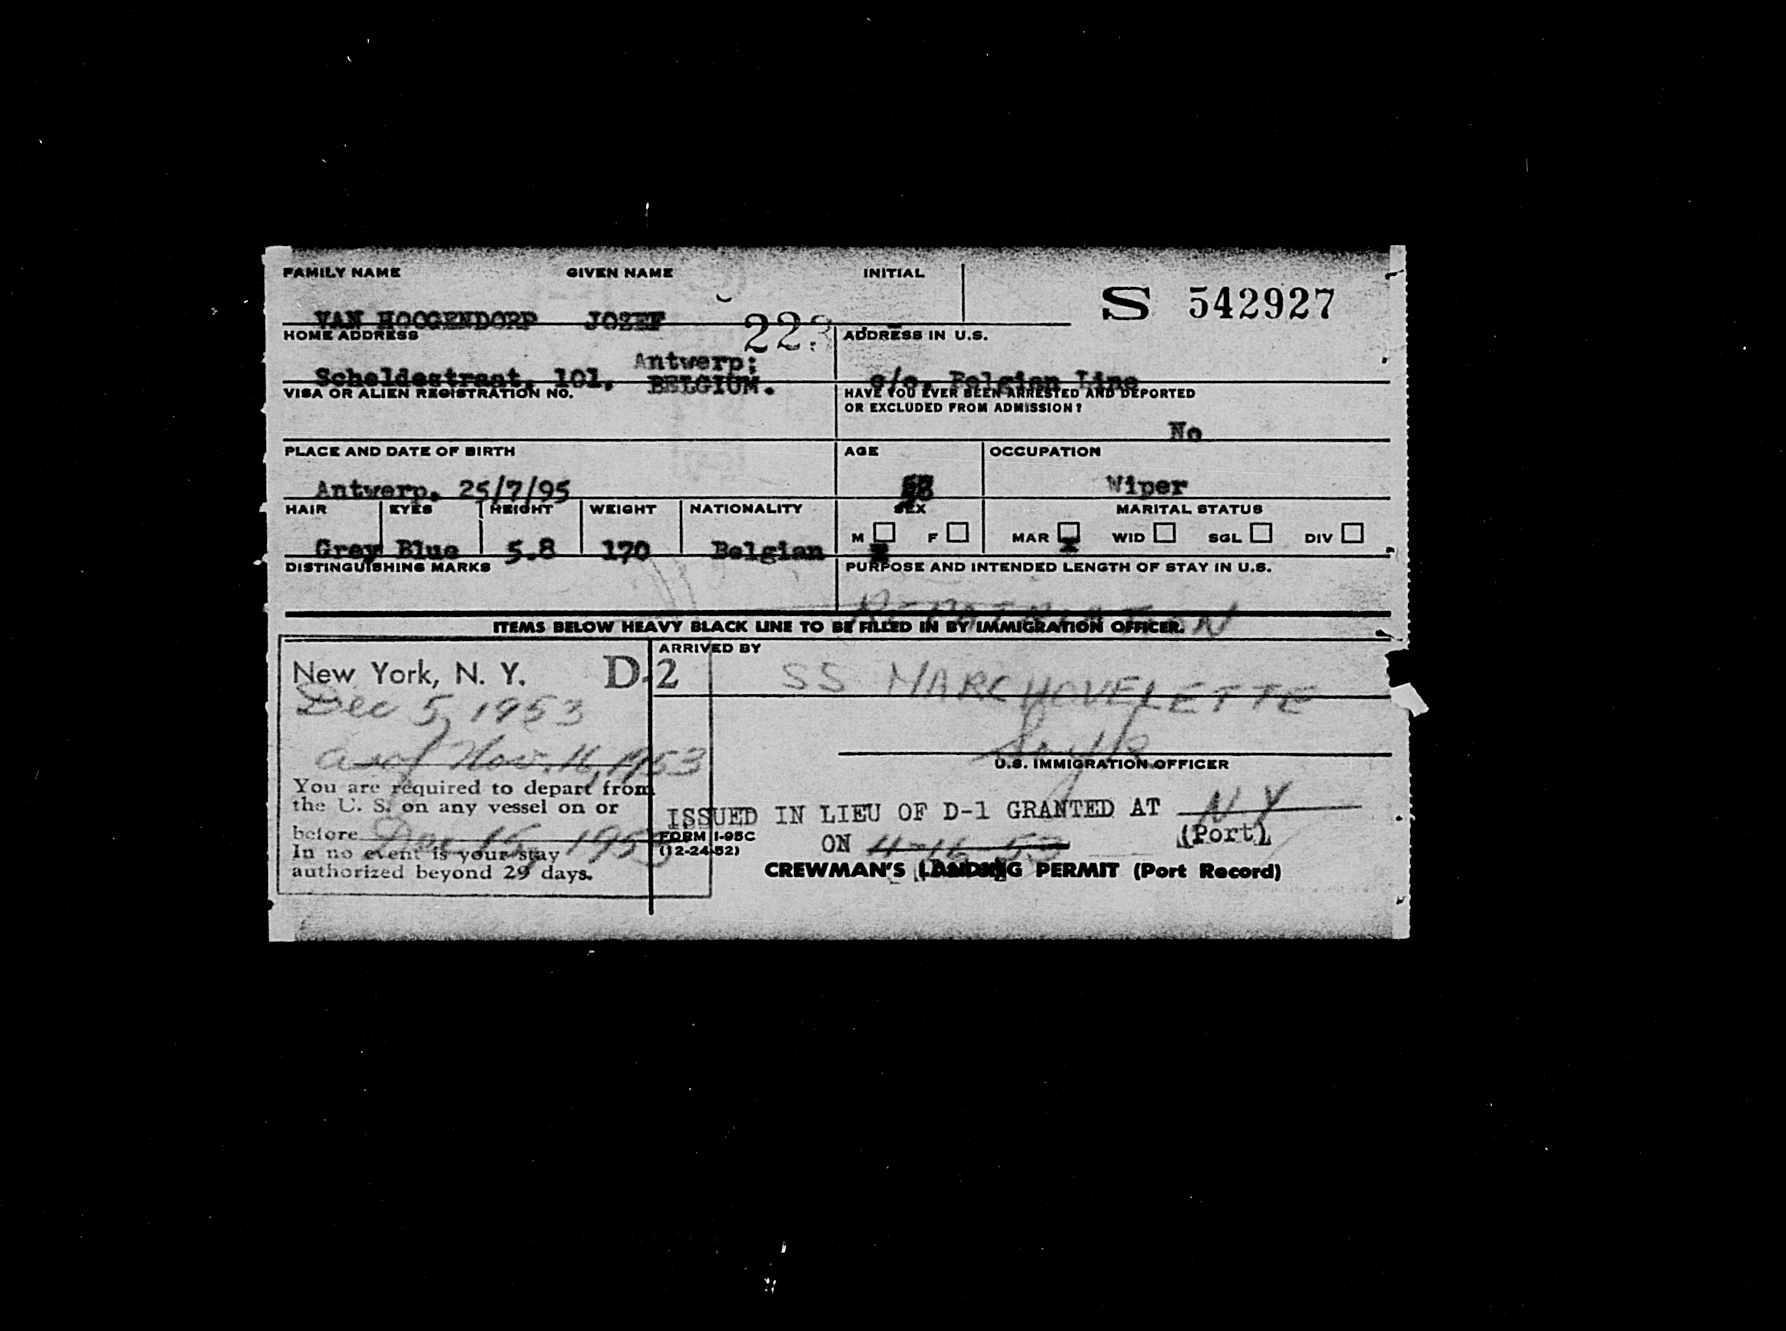 FAMILY NAME GIVEN NAME INITIAL
S 542927
VAN HOOGENDORP JOZEF 223
HOME ADDRESS ADDRESS IN U.S.
Antwerp;
Scheldestraat, 101. BELGIUM. c/o. Belgian Line
VISA OR ALIEN REGISTRATION NO. HAVE YOU EVER BEEN ARRESTED AND DEPORTED
OR EXCLUDED FROM ADMISSION?
No
PLACE AND DATE OF BIRTH AGE OCCUPATION
Antwerp. 25/7/95 Wiper
HAIR EYES HEIGHT WEIGHT NATIONALITY SEX MARITAL STATUS
M F MAR X WID SGL DIV
Grey Blue 5.8 170 Belgian X
DISTINGUISHING MARKS PURPOSE AND INTENDED LENGTH OF STAY IN U.S.
ITEMS BELOW HEAVY BLACK LINE TO BE FILLED IN BY IMMIGRATION OFFICER.
ARRIVED BY
New York, N. Y. D-2 SS MARCHOVELETTE
Dec 5, 1953
as of Nov. 16, 1953
U.S. IMMIGRATION OFFICER
You are required to depart from
the U. S. on any vessel on or
before Dec 15, 1953
In no event is your stay
authorized beyond 29 days.
ISSUED IN LIEU OF D-1 GRANTED AT N Y
(Port)
FORM I-95C
(12-24-52)
ON 4-16-53
CREWMAN'S LANDING PERMIT (Port Record)